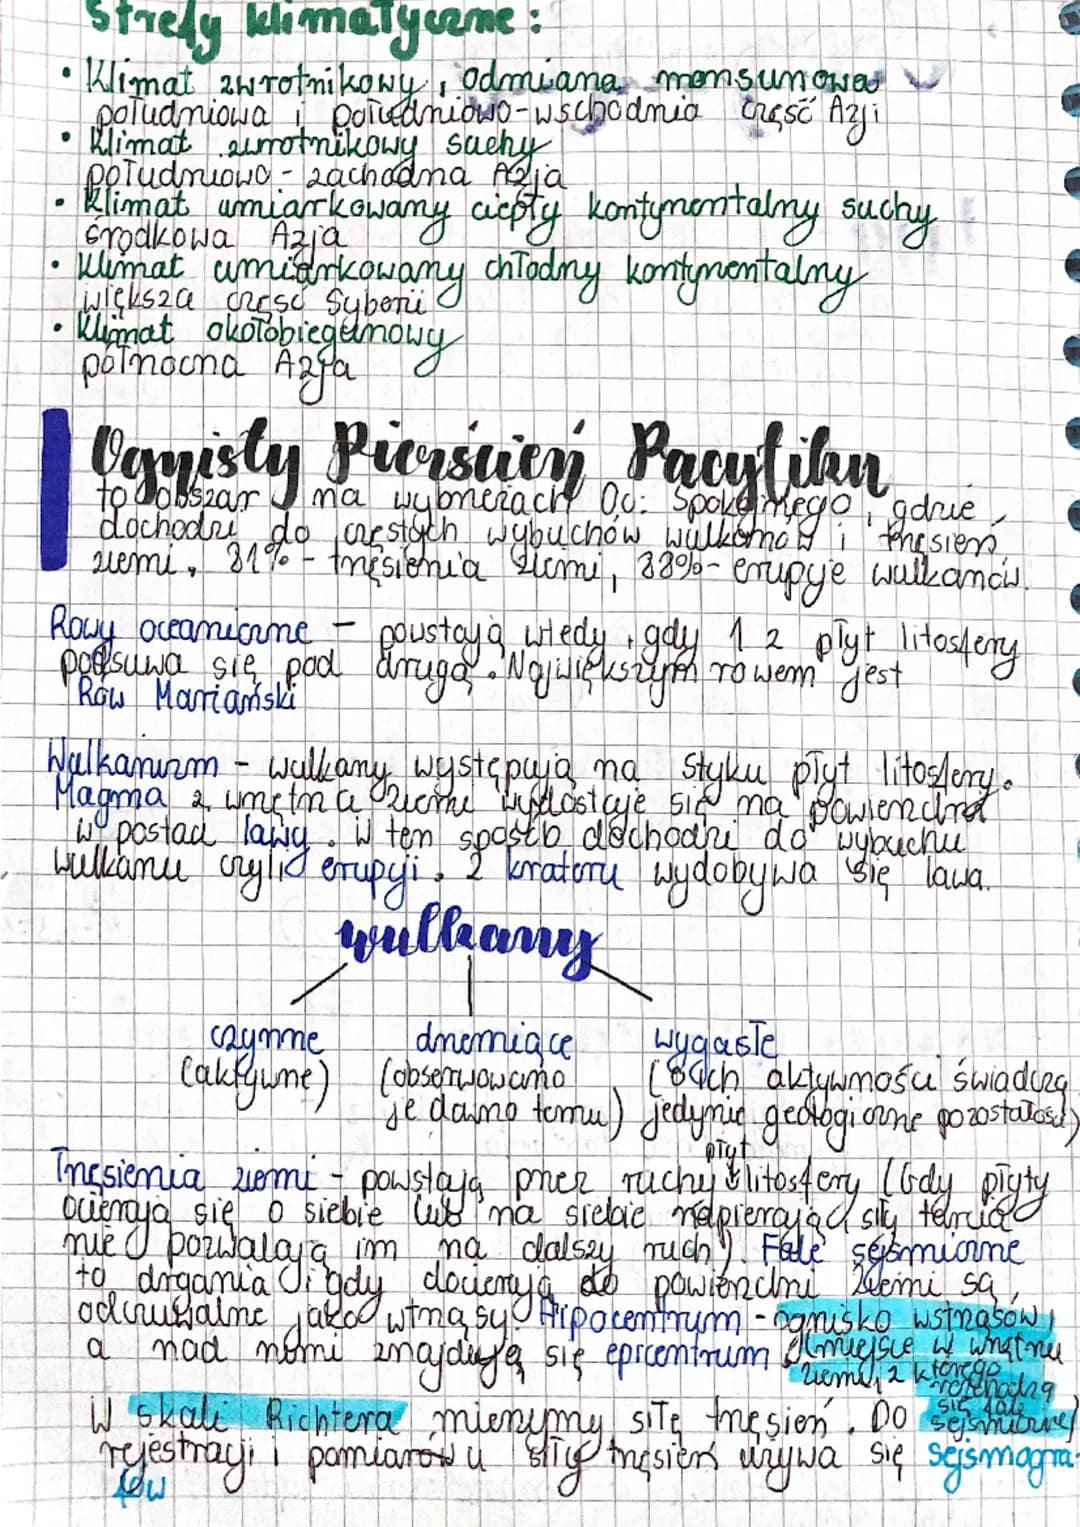 Strefy klimatyczne:
• Klimat zwrotnikowy, odmiana monsunowa
południowa i południowo-wschodnia część Azji
• Klimat zwrotnikowy suchy
południowo-zachodna Azja
• Klimat umiarkowany ciepły kontynentalny suchy
środkowa Azja
• Klimat umiarkowany chłodny kontynentalny
większa część Syberii
• Klimat okołobiegunowy
północna Azja
Ognisty Pierścień Pacyfiku
to obszar na wybrzeżach Oc. Spokojnego, gdzie
dochodzi do częstych wybuchów wulkanów i trzęsień
ziemi, 81% - trzęsienia ziemi, 88% - erupcje wulkanów.
Rowy oceaniczne - powstają wtedy, gdy 1 z płyt litosfery
podsuwa się pod drugą. Największym rowem jest
Rów Mariański
Wulkanizm - wulkany występują na styku płyt litosfery.
Magma z wnętrza ziemi wydostaje się na powierzchnię
w postaci lawy. W ten sposób dochodzi do wybuchu
wulkanu czyli erupcji. Z krateru wydobywa się lawa.
wulkany
czynne drzemiące wygasłe
(aktywne) (obserwowano (o ich aktywności świadczą
je dawno temu) jedynie geologiczne pozostałości)
płyt
Trzęsienia ziemi - powstają przez ruchy litosfery (Gdy płyty
ocierają się o siebie lub na siebie napierają siły tarcia
nie pozwalają im na dalszy ruch). Fale sejsmiczne
to drgania i gdy docierają do powierzchni Ziemi są
odczuwalne jako wstrząsy. Hipocentrum - ognisko wstrząsów,
a nad nimi znajduje się epicentrum (miejsce w wnętrzu
ziemi, z którego
rozchodzą
się fale
W skali Richtera mierzymy siłę trzęsień. Do sejsmiczne)
rejestracji i pomiarów siły trzęsień używa się sejsmogra-
fów